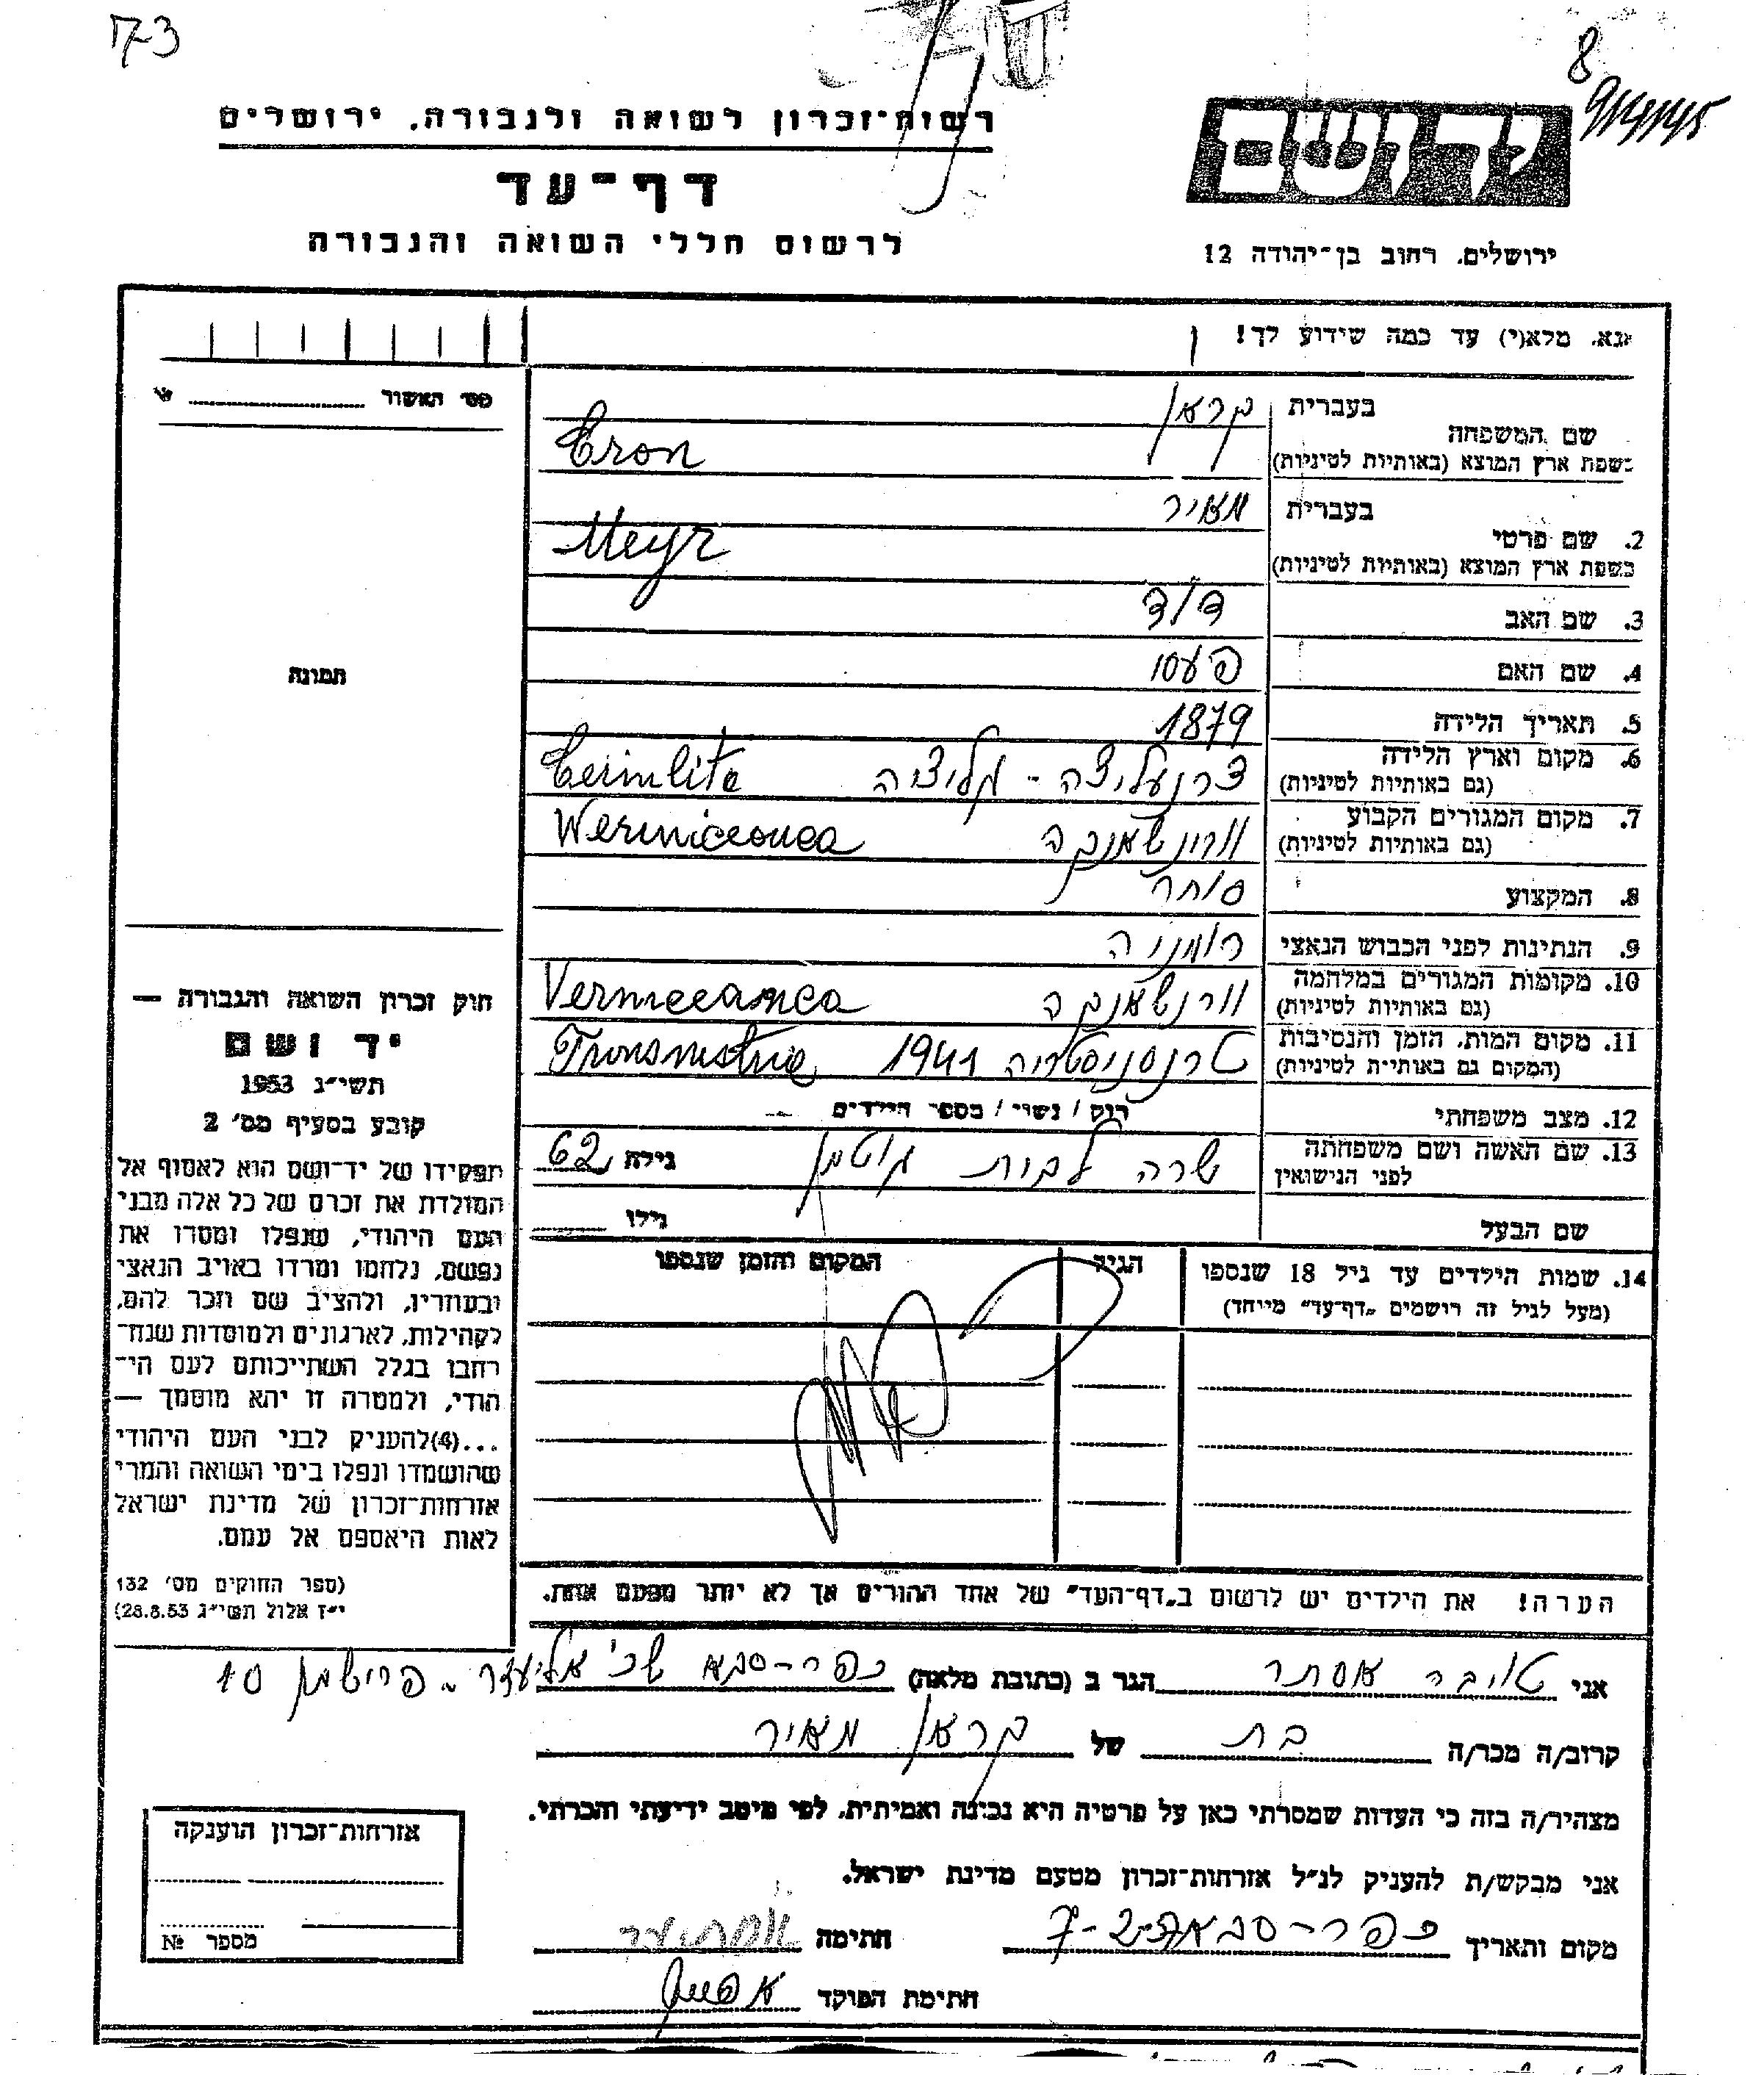 173
8
רשות-זכרון לשואה ולגבורה, ירושלים
דף-עד
לרשום חללי השואה והגבורה
ידושם
ירושלים, רחוב בן-יהודה 12
אנא, מלא(י) עד כמה שידוע לך!
מס' האשור
שם המשפחה
בעברית קרען
בשפת ארץ המוצא (באותיות לטיניות) Cron
2. שם פרטי
בעברית מאיר
בשפת ארץ המוצא (באותיות לטיניות) Meyr
3. שם האב דוד
4. שם האם
5. תאריך הלידה 1879
6. מקום וארץ הלידה
(גם באותיות לטיניות) צרנעליצה - גליציה Cernlita
7. מקום המגורים הקבוע
(גם באותיות לטיניות) וורונצאנקה
8. המקצוע סוחר
9. הנתינות לפני הכבוש הנאצי רומניה
10. מקומות המגורים במלחמה
(גם באותיות לטיניות) וורנצאנקה Verniceanca
11. מקום המות, הזמן והנסיבות
(המקום גם באותיות לטיניות) טרנסניסטריה 1941 Transnistria
12. מצב משפחתי רוק / נשוי / מספר הילדים
13. שם האשה ושם משפחתה
לפני הנישואין שרה לבית גוטמן גילה 62
שם הבעל גילו
14. שמות הילדים עד גיל 18 שנספו
(מעל לגיל זה רושמים "דף-עד" מייחד)
הגיל
המקום והזמן שנספו
תמונה
חוק זכרון השואה והגבורה —
יד ושם
תשי״ג 1953
קובע בסעיף מס' 2
תפקידו של יד-ושם הוא לאסוף אל
המולדת את זכרם של כל אלה מבני
העם היהודי, שנפלו ומסרו את
נפשם, נלחמו ומרדו באויב הנאצי
ובעוזריו, ולהציב שם וזכר להם,
לקהילות, לארגונים ולמוסדות שנח-
רבו בגלל השתייכותם לעם הי-
הודי, ולמטרה זו יהא מוסמך —
...(4)להעניק לבני העם היהודי
שהושמדו ונפלו בימי השואה והמרי
אזרחות-זכרון של מדינת ישראל
לאות היאספם אל עמם.
(ספר החוקים מס' 132
י״ז אלול תשי״ג 28.8.53)
הערה! את הילדים יש לרשום ב"דף-העד" של אחד ההורים אך לא יותר מפעם אחת.
אני טויבר אסתר הגר ב (כתובת מלאה) כפר-סבא שכ' אליעזר 10
קרוב/ה מכר/ה בת של קרען מאיר
מצהיר/ה בזה כי העדות שמסרתי כאן על פרטיה היא נכונה ואמיתית, לפי מיטב ידיעתי והכרתי.
אני מבקש/ת להעניק לנ״ל אזרחות-זכרון מטעם מדינת ישראל.
מקום ותאריך כפר-סבא חתימה
חתימת הפוקד
אזרחות-זכרון הוענקה
מספר №